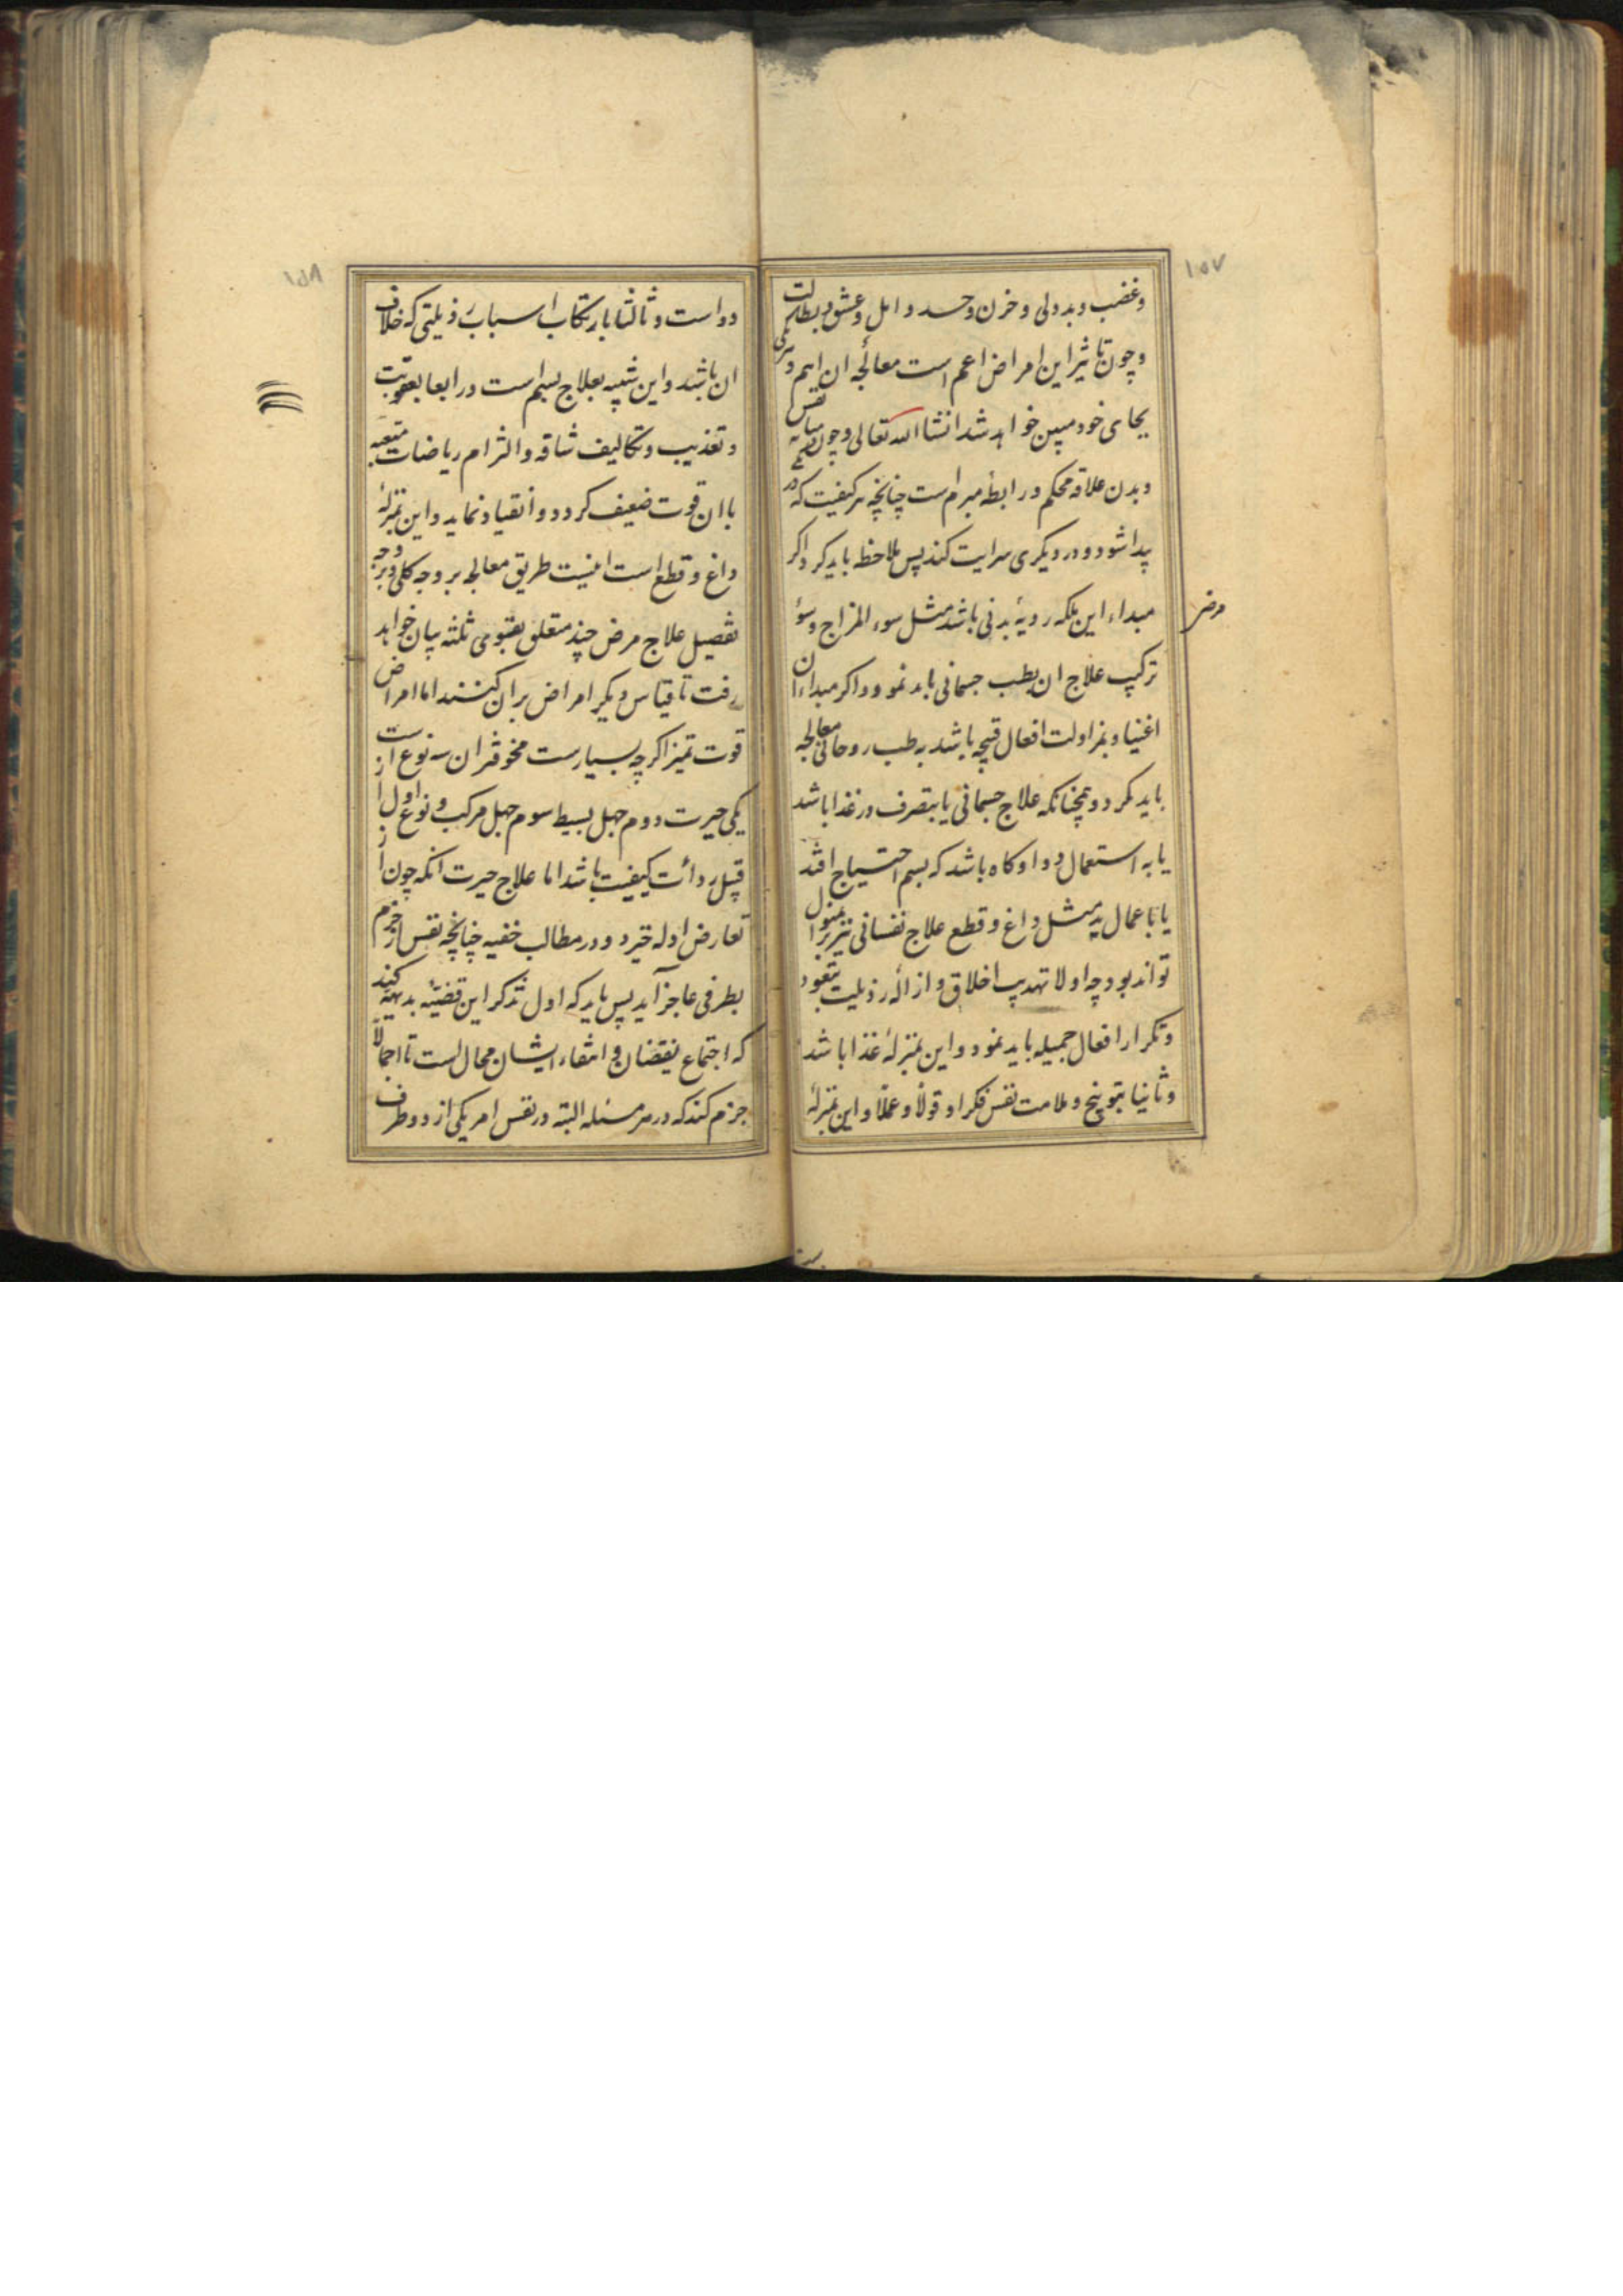 ١٥٧
وغضب وبددلی و حزن و حسد و امل و عشق و بطالت
و چون تاثیر این امراض اعم است معالجه ان اهم و هریکی
بجای خود مبین خواهد شد انشاالله تعالی و چون میانه نفس
وبدن علاقه محکم و رابطه مبرم است چنانچه هر کیفیت که در
پیدا شود و در دیگری سرایت کند پس ملاحظه باید کرد اگر
مبداء این ملکه ردیهٔ بدنی باشد مثل سوء المزاج و سؤ
مرض
ترکیب علاج ان بطب جسمانی باید نمود و اگر مبداء ان
اغتیاد بمزاولت افعال قبیحه باشد به طب روحانی معالجه
باید کرد و همچنانکه علاج جسمانی یا بتصرف در غذا باشد
یا به استعمال دوا و کاه باشد که بسم احتیاج افتد
یا باعمال ید مثل داغ و قطع علاج نفسانی نیز برین منوال
تواند بود چه اولا تهذیب اخلاق و ازاله رذیلت بتعود
وتکرار افعال جمیله باید نمود و این بمنزلهٔ غذا باشد
وثانیا بتوبیخ و ملامت نفس فکرا و قولاً و عملاً و این بمنزلهٔ
١٥٨
دواست و ثالثا بارتکاب اسباب رذیلتی که خلاف
ان باشد و این شبیه بعلاج بسم است و رابعا بعقوبت
وتعذیب و تکالیف شاقه و التزام ریاضات متعبه
با ان قوت ضعیف کردد و انقیاد نماید و این بمنزلهٔ
داغ و قطع است اینست طریق معالجه بر وجه کلی و بر وجه
تفصیل علاج مرض چند متعلق بقوی ثلثه بیان خواهد
رفت تا قیاس دیگر امراض بران کنند اما امراض
قوت تمیز اکرچه بسیارست مخوفتر ان سه نوع است
یکی حیرت دوم جهل بسیط سوم جهل مرکب و نوع اول از
قبیل ردائت کیفیت باشد اما علاج حیرت انکه چون از
تعارض ادله خیرد و در مطالب خفیه چنانچه نفس از جزم
بطرفی عاجز آید پس باید که اول تذکر این قضیهٔ بدیهیه کند
که اجتماع نقیضان و انتفاء ایشان محال است تا اجمالاً
جزم کند که در هر مسئله البته در نفس امر یکی از دو طرف